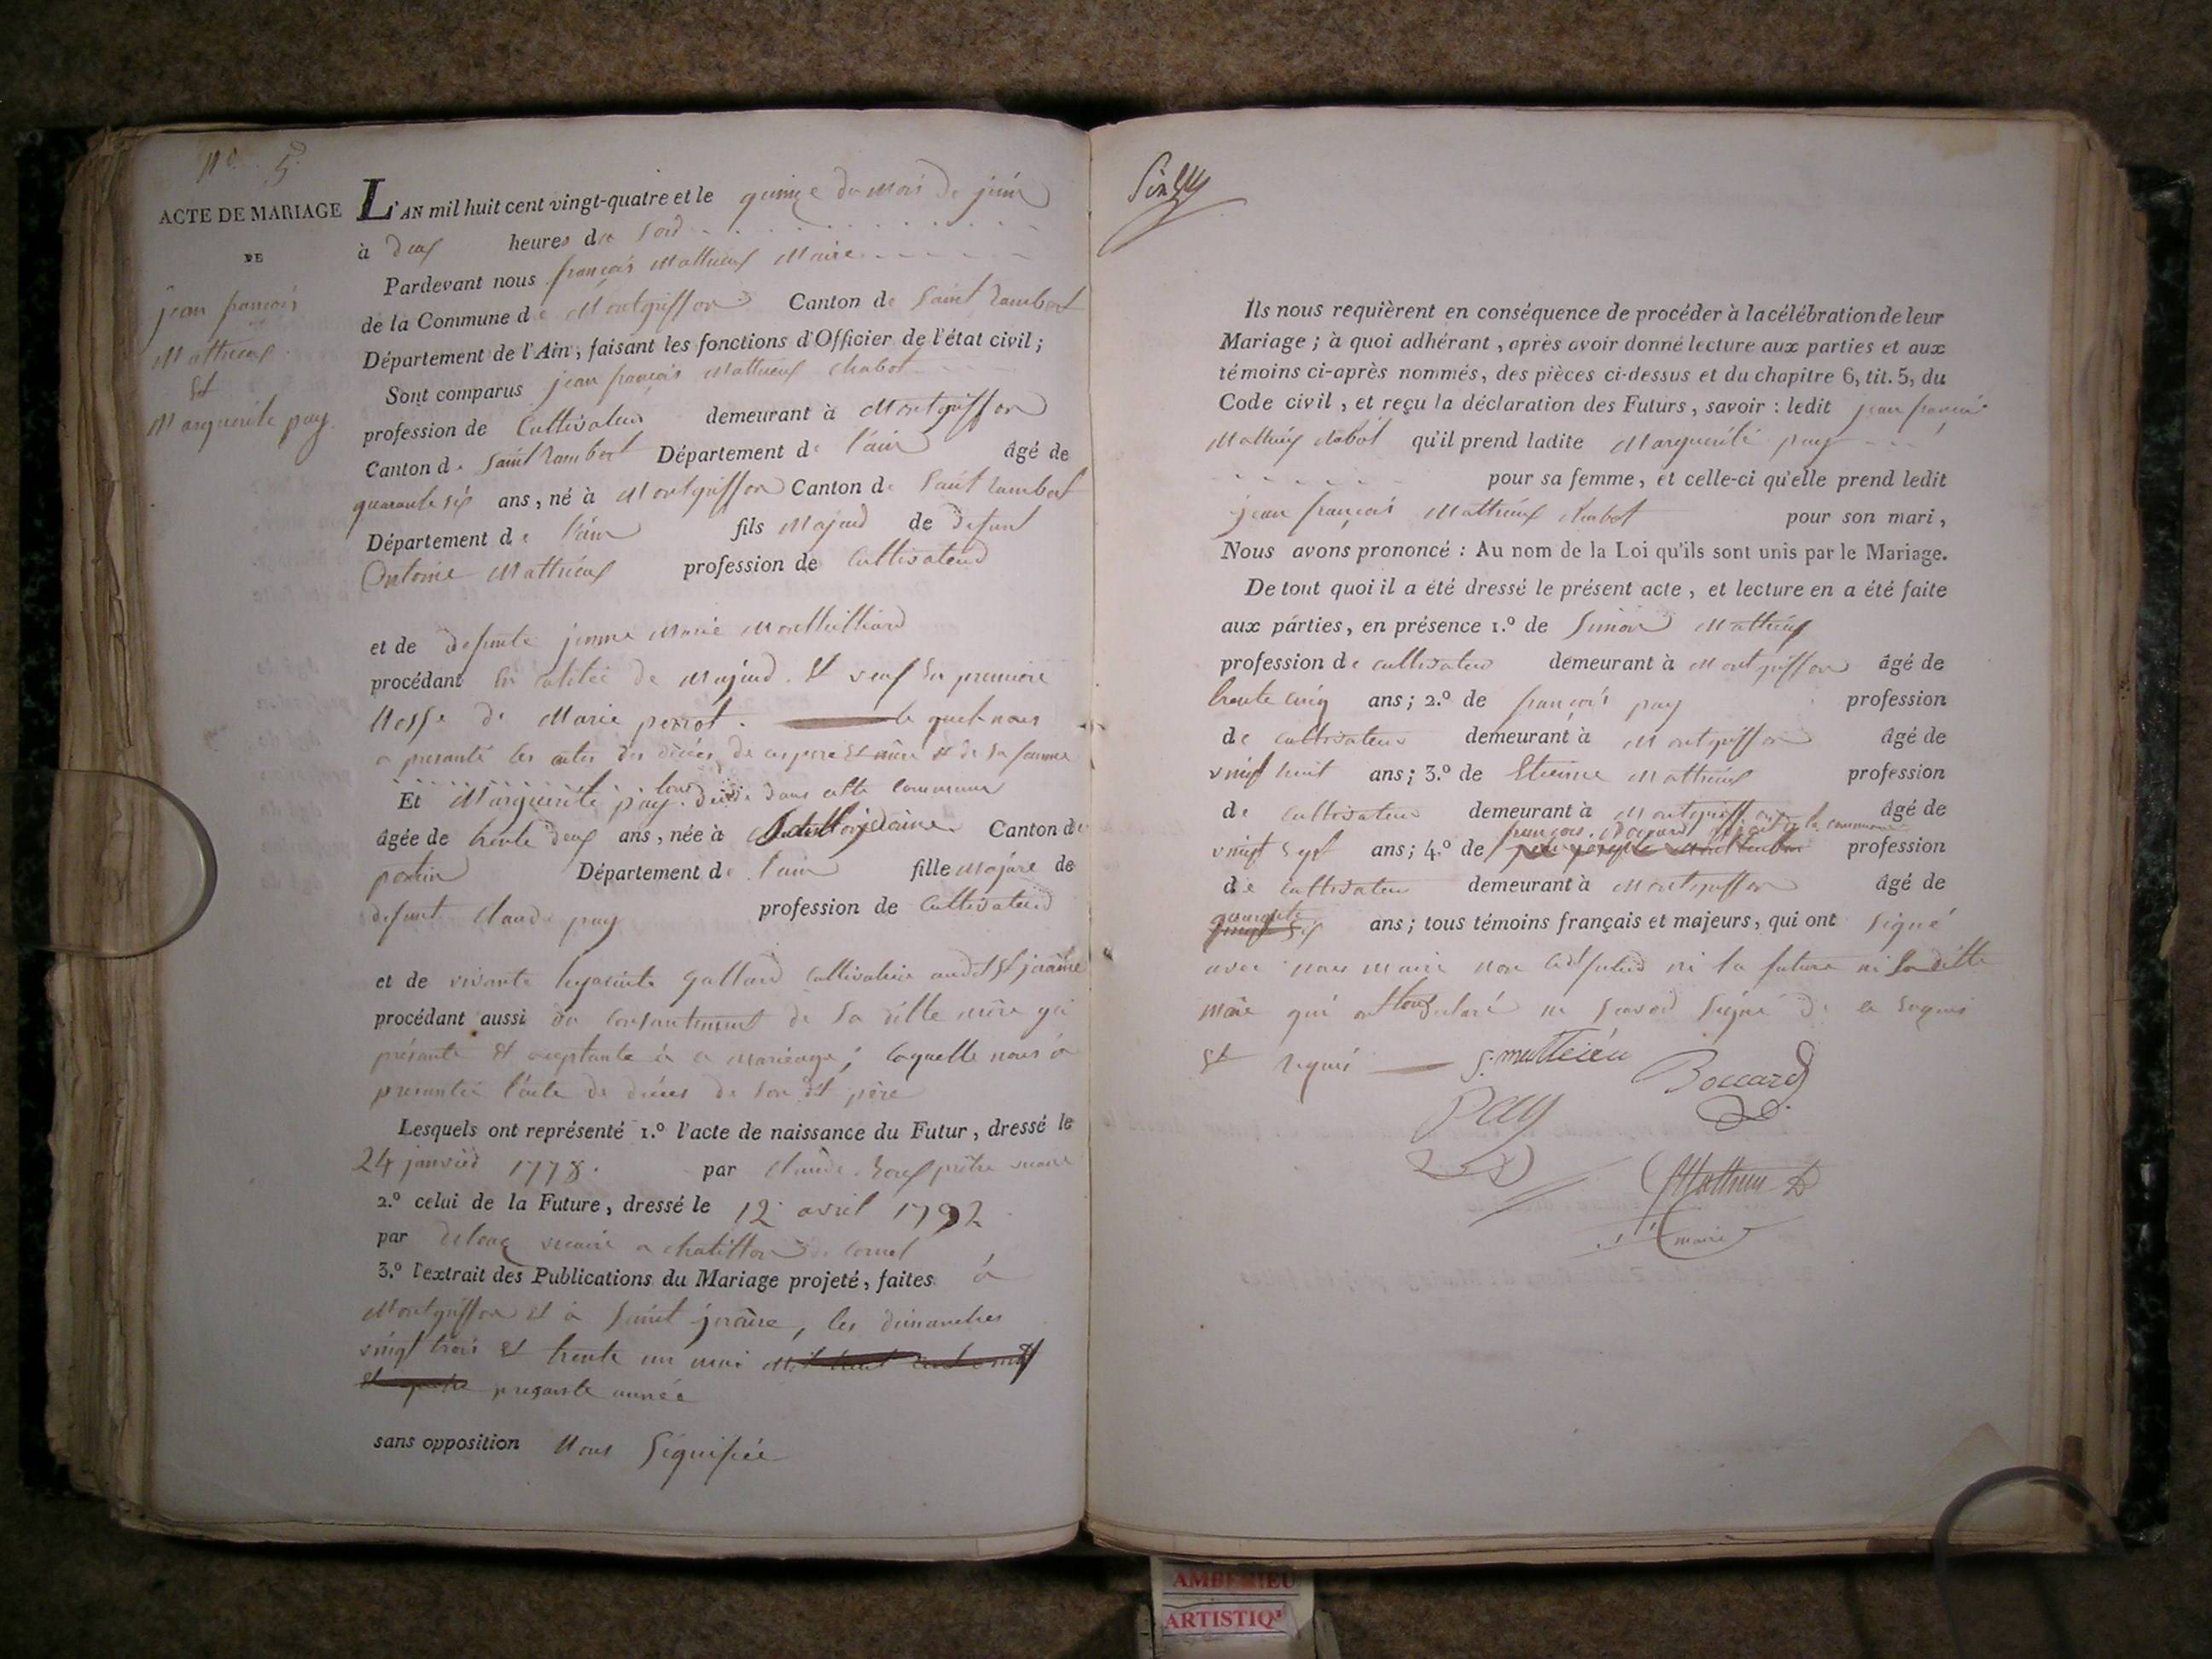 N.º 5
ACTE DE MARIAGE
DE
jean françois
Mathieux
Et
Marguerite pay.
L'AN mil huit cent vingt-quatre et le quinze du mois de juin
à deux heures du soir
Pardevant nous françois Mathieux Maire
de la Commune de Montgriffon Canton de Saint Rambert
Département de l'Ain, faisant les fonctions d'Officier de l'état civil;
Sont comparus jean françois Mathieux chabot
profession de Cultivateur demeurant à Montgriffon
Canton de Saint Rambert Département de l'ain âgé de
quarante six ans, né à Montgriffon Canton de Saint Rambert
Département de l'ain fils Majeur de defunt
Antoine Mathieux profession de Cultivateur
et de defunte jeanne Marie Monthilliard
procédant en calitée de Majeur. Et veuf en premiere
Nosse de Marie perrot. le quel nous
a presanté les actes des décés de ces pere et mère et de sa femme
tous
Et Marguerite pay. décédé dans cette commune
âgée de trente deux ans, née à Canton de
poncin Département de l'ain fille majure de
defunt claude pay profession de Cultivateur
et de vivante hyacinte gallard cultivatrice audit St jérôme
procédant aussi du consantement de sa ditte mère y ci
présante et aceptante à ce mariéage; laquelle nous à
presantée l'acte de décés de son dit père
Lesquels ont représenté 1.º l'acte de naissance du Futur, dressé le
24 janvier 1778. par claude prêtre vicaire
2.º celui de la Future, dressé le 12 avril 1792
par vicaire a chatillon de Cornel
3.º l'extrait des Publications du Mariage projeté, faites à
Montgriffon et à Saint jerôme, les dimanches
vingt trois et trente un mai mil huit cent vingt
et quatre presante année
sans opposition Nous Signifiée
Ils nous requièrent en conséquence de procéder à la célébration de leur
Mariage; à quoi adhérant, après avoir donné lecture aux parties et aux
témoins ci-après nommés, des pièces ci-dessus et du chapitre 6, tit. 5, du
Code civil, et reçu la déclaration des Futurs, savoir: ledit jean françois
Mathieux chabot qu'il prend ladite Marguerite pay
pour sa femme, et celle-ci qu'elle prend ledit
jean françois Mathieux chabot pour son mari,
Nous avons prononcé: Au nom de la Loi qu'ils sont unis par le Mariage.
De tout quoi il a été dressé le présent acte, et lecture en a été faite
aux parties, en présence 1.º de Simon Mathieux
profession de cultivateur demeurant à Montgriffon âgé de
trente cinq ans; 2.º de françois pay profession
de cultivateur demeurant à Montgriffon âgé de
vingt huit ans; 3.º de Etienne Mathieux profession
de cultivateur demeurant à Montgriffon âgé de
françois Boccard adjoint de la commune
vingt sept ans; 4.º de profession
de cultivateur demeurant à Montgriffon âgé de
quarante
vingt six ans; tous témoins français et majeurs, qui ont signé
avec nous maire non ledit futur ni la future ni sa ditte
mère qui ont tous declaré ne savoir signé de ce enquis
et requis S. mathieu Boccard
Pay
Mathieu
maire
AMBERIEU
ARTISTIQ